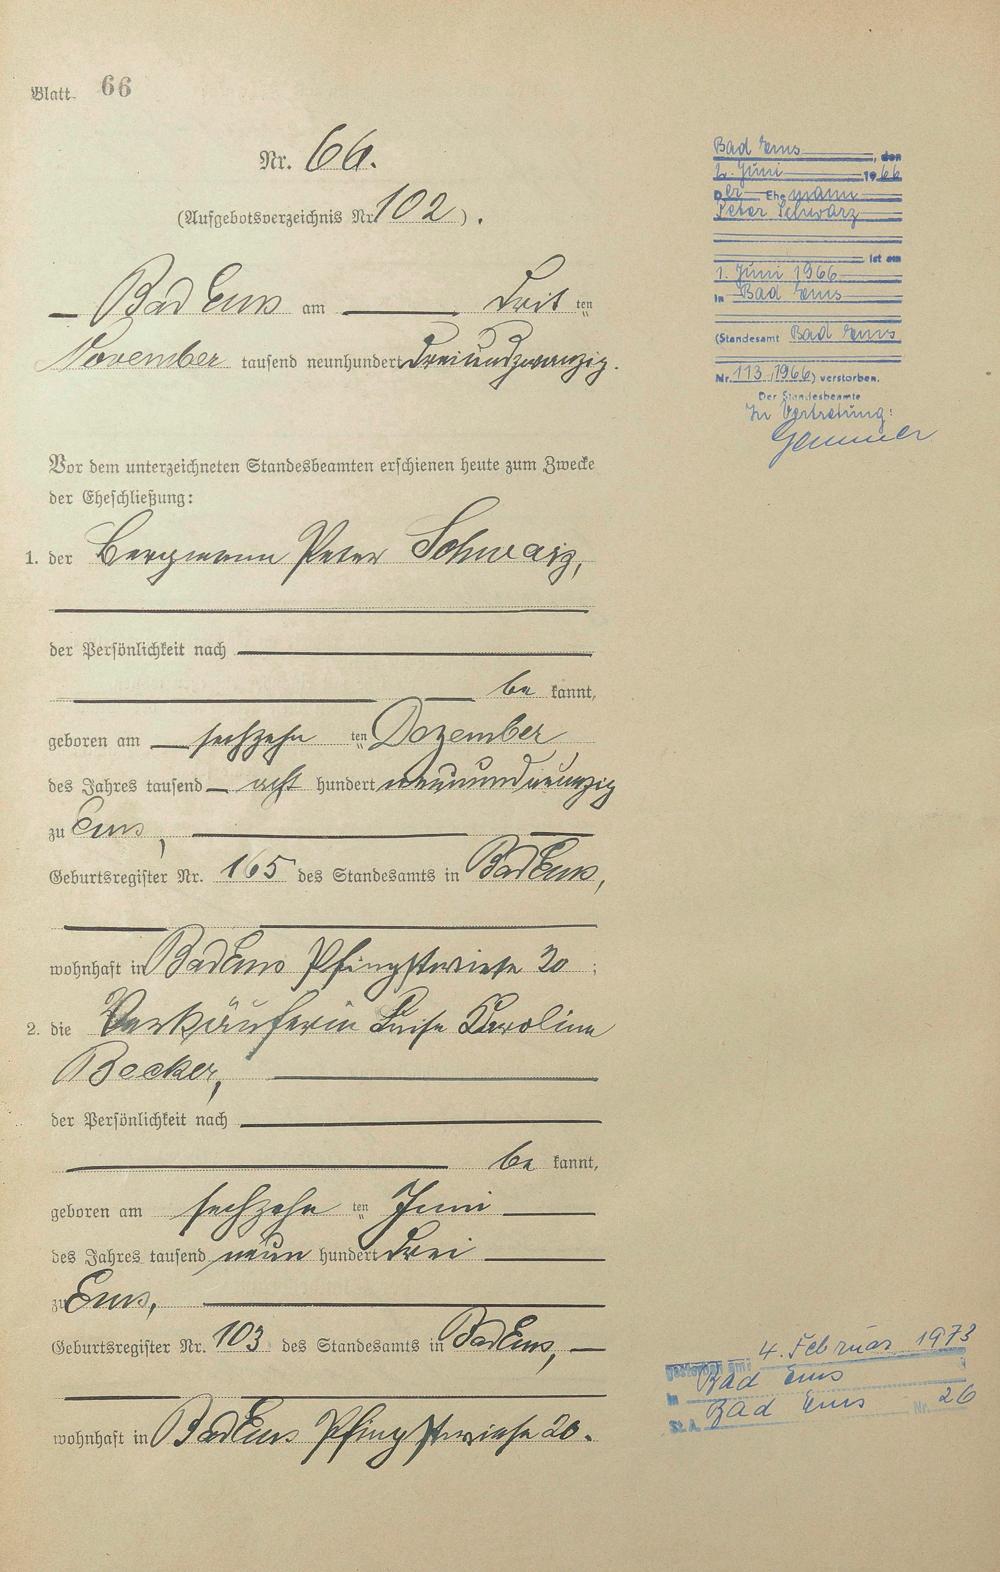 Blatt 66
Nr. 66.
(Aufgebotsverzeichnis Nr. 102).
Bad Ems am drit ten
November tausend neunhundert dreiundzwanzig.
Vor dem unterzeichneten Standesbeamten erschienen heute zum Zwecke
der Eheschließung:
1. der Bergmann Peter Schwarz,
der Persönlichkeit nach
be kannt,
geboren am sechzehn ten Dezember
des Jahres tausend acht hundert neunundneunzig
zu Ems,
Geburtsregister Nr. 165 des Standesamts in Bad Ems,
wohnhaft in Bad Ems Pfingstwiese 20;
2. die Verkäuferin Luise Karoline
Becker,
der Persönlichkeit nach
be kannt,
geboren am sechzehn ten Juni
des Jahres tausend neun hundert drei
zu Ems,
Geburtsregister Nr. 103 des Standesamts in Bad Ems,
wohnhaft in Bad Ems Pfingstwiese 20.
Bad Ems, den
2. Juni 1966
Der Ehemann
Peter Schwarz
ist am
1. Juni 1966
in Bad Ems
(Standesamt Bad Ems
Nr. 113/1966) verstorben.
Der Standesbeamte
In Vertretung:
gestorben am: 4. Februar 1973
in Bad Ems
St.A. Bad Ems Nr. 26